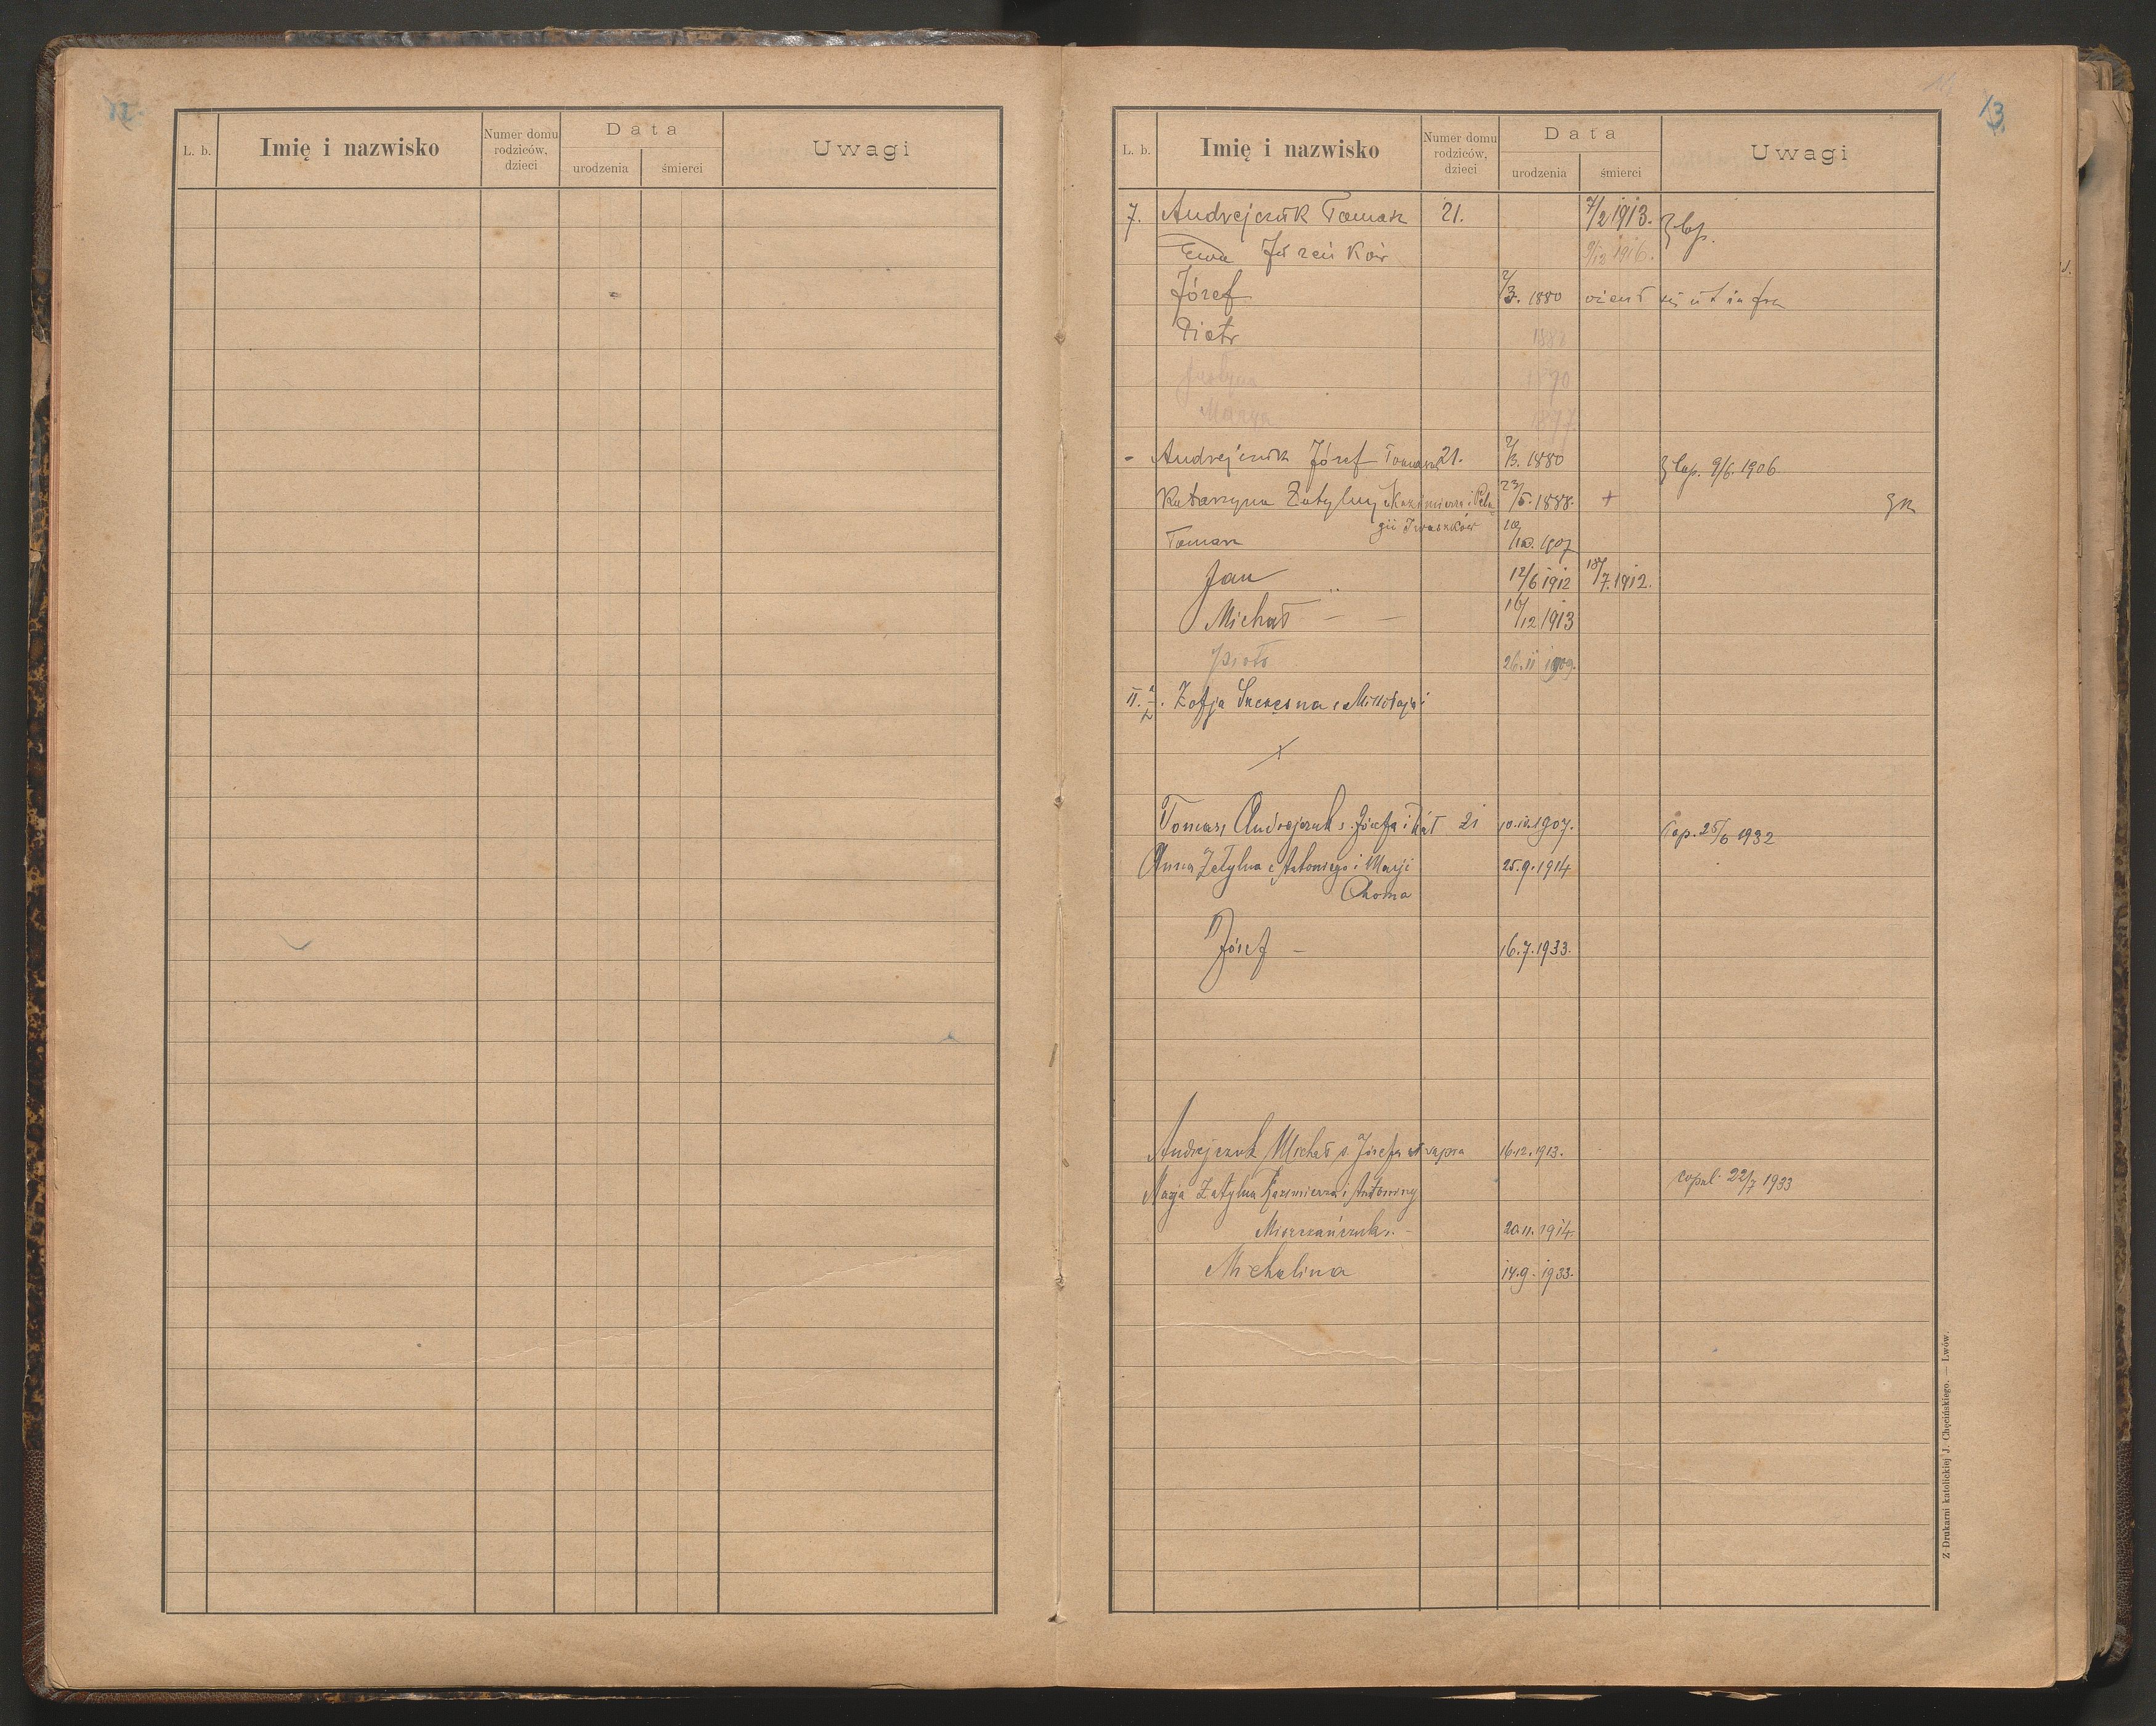 12.
L. b. Imię i nazwisko Numer domu rodziców, dzieci Data urodzenia śmierci Uwagi
13
L. b. Imię i nazwisko Numer domu rodziców, dzieci Data urodzenia śmierci Uwagi
7. Andrejczuk Tomasz 21. 7/2 1913.
Ewa /12 1916.
Józef 2/3. 1880
Piotr 1888
1890
Marya 1897
- Andrejczuk Józef Tomasz 21. 2/3. 1880 9/6. 1906
Katarzyna Zatylny Kazimierza i Pela 23/5. 1888. +
gii Iwaszków
Tomasz 10/10. 1907
Jan 12/6 1912 18/7. 1912.
Michał - - 16/12 1913
Piotr 26.11 1909.
II. Zofja Szczęsna c Mikołaja i
x
Tomasz Andrejczuk s. Józefa i Kat 21 10.10.1907. Cop. 25/6 1932
Anna Zatylna c Antoniego i Marji 25.9.1914
Choma
Józef - 16.7.1933.
Andrejczuk Michał s. Józefa 16.12.1913.
Marja Zatylna Kazimierza i Antoniny copul. 22/7 1933
Mieszczańczuk. - 20.11.1914.
Michalina 14.9. 1933.
Z Drukarni katolickiej J. Chęcińskiego. — Lwów.